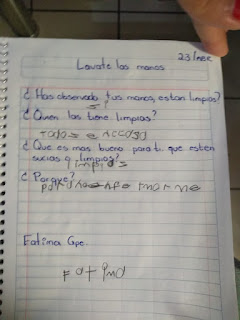 23/nov.
Lavate las manos
¿Has observado tus manos, estan limpias?
si
¿Quien las tiene limpias?
Todos e
¿Que es mas bueno para ti que esten
sucias o limpias?
limpias
¿Porque?
para no
Fatima Gpe.
Fatima